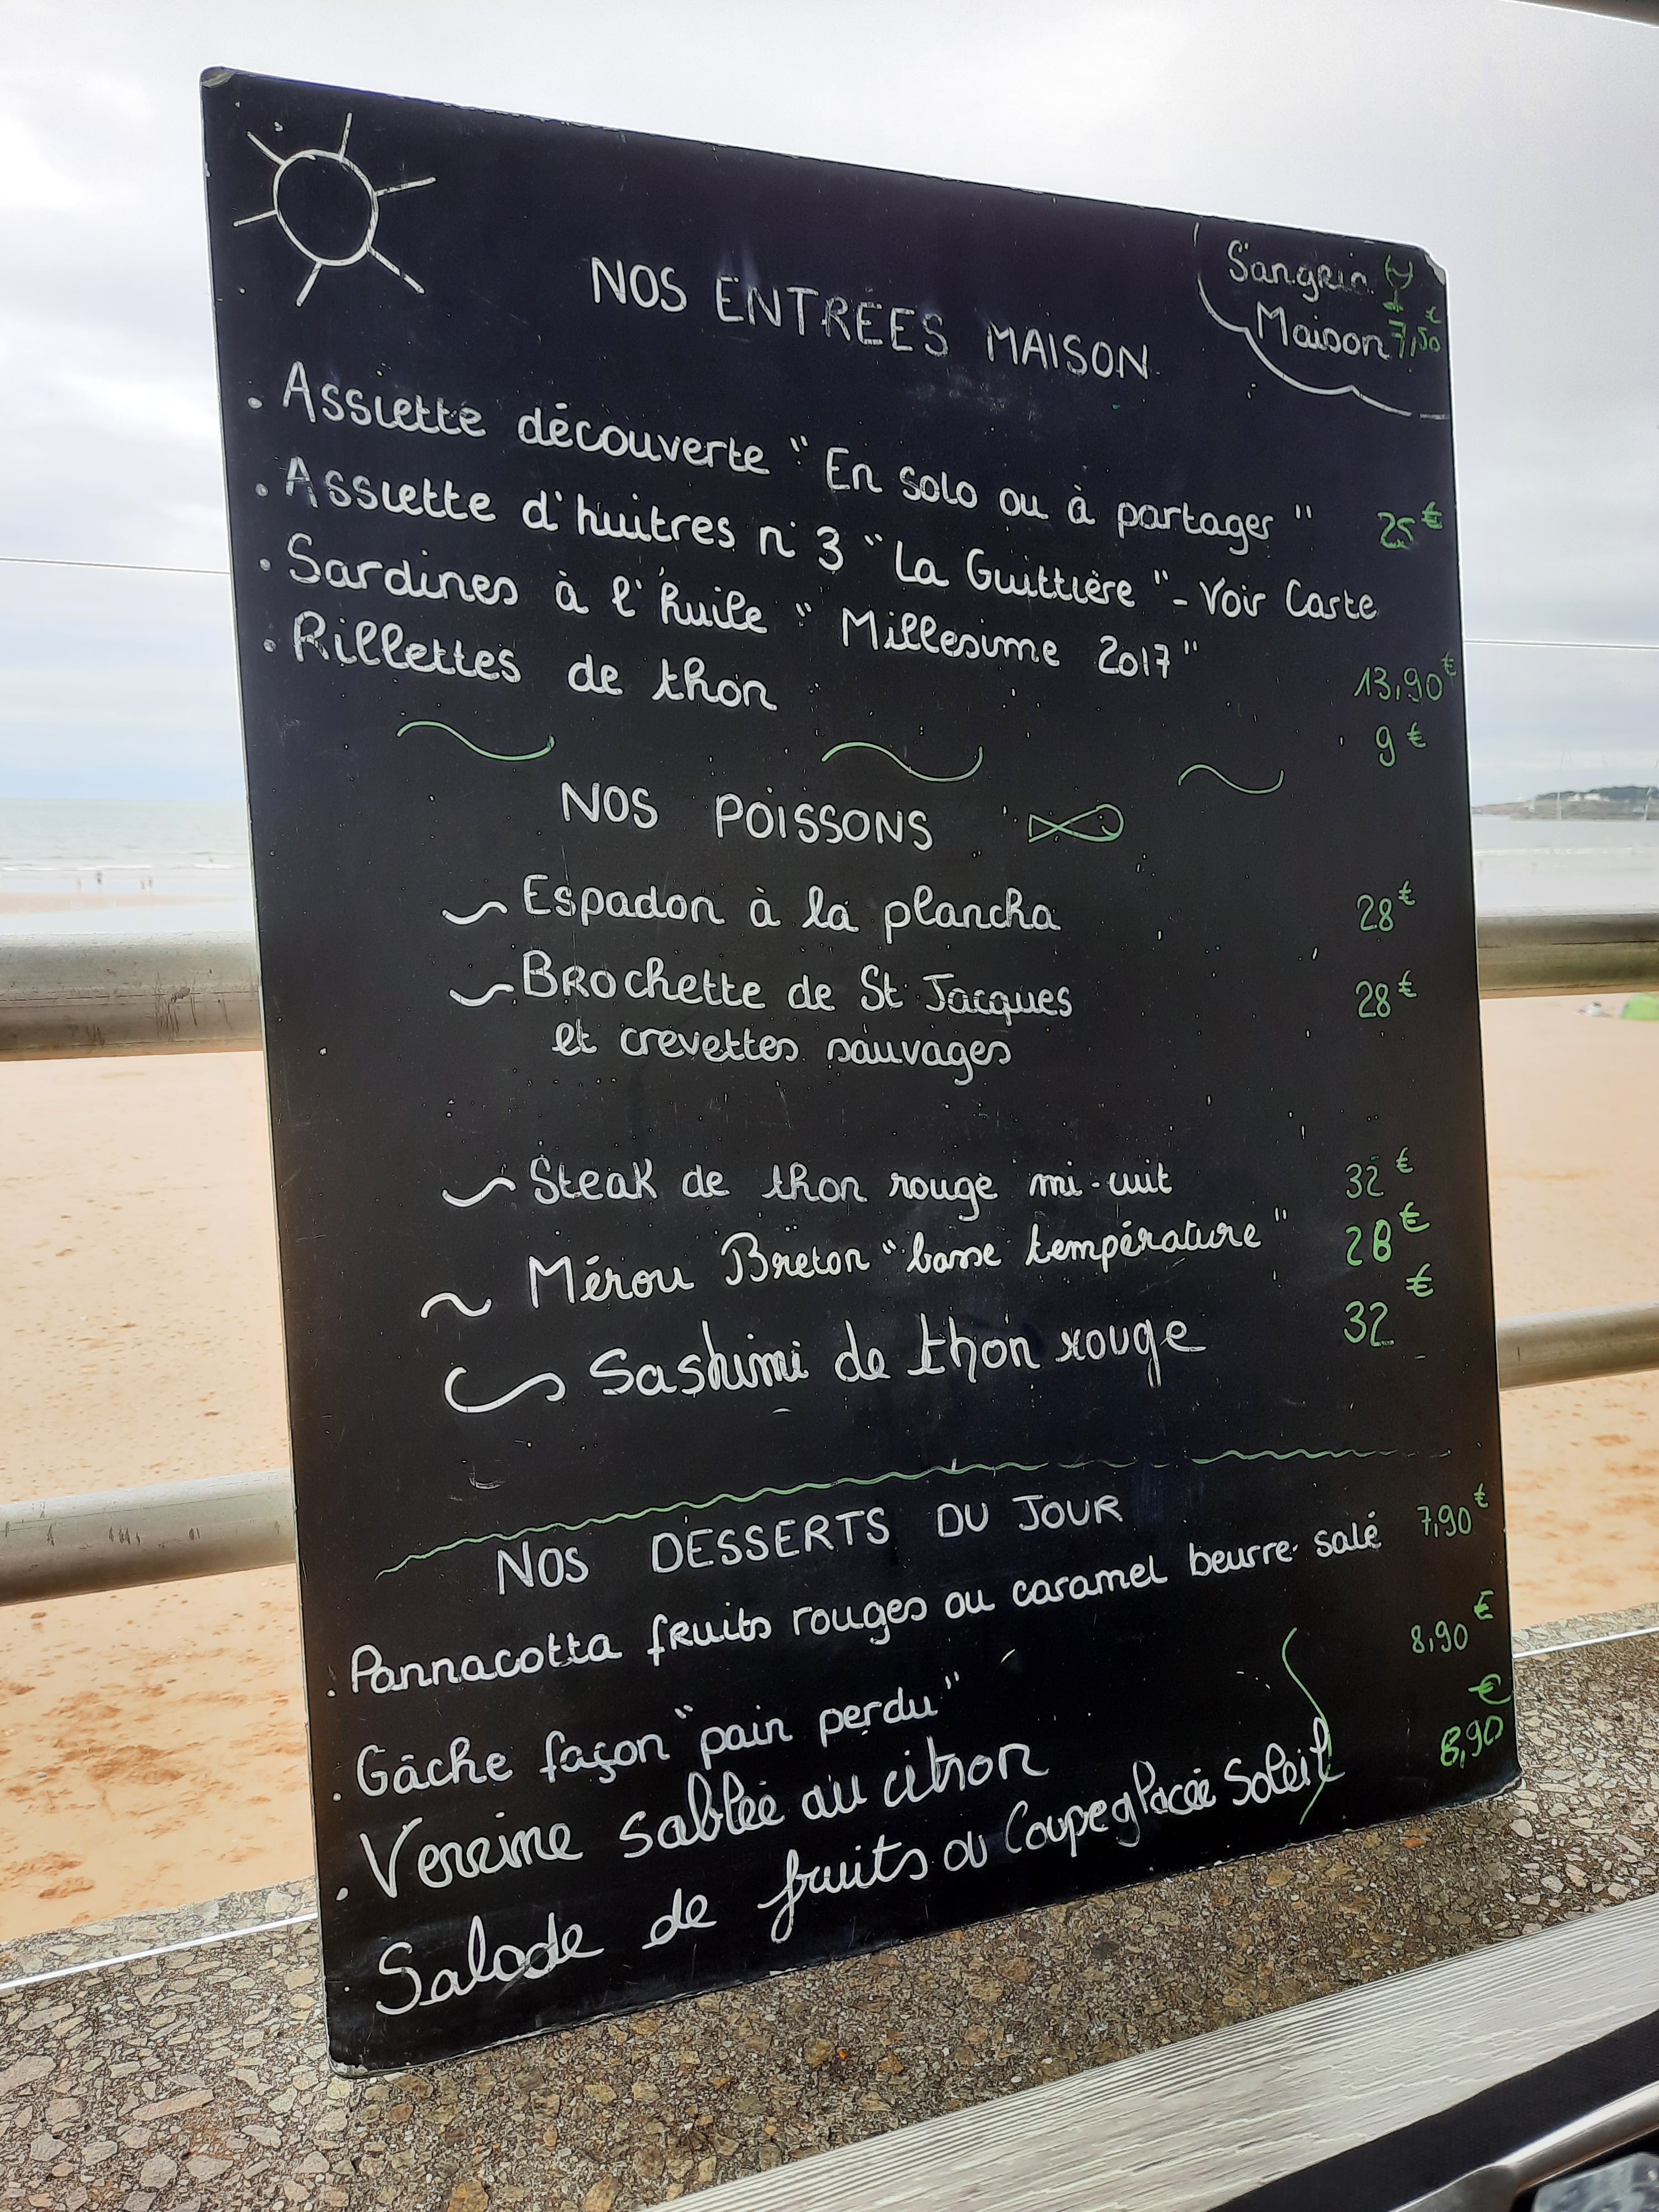 Sangria
Maison 7,50€
NOS ENTRÉES MAISON
. Assiette découverte "En solo ou à partager" 25€
. Assiette d'huitres n°3 "La Guittière" - Voir Carte
. Sardines à l'huile "Millesime 2017" 13,90€
. Rillettes de thon 9€
NOS POISSONS
~ Espadon à la plancha 28€
~ Brochette de St Jacques 28€
et crevettes sauvages
~ Steak de thon rouge mi-cuit 32€
~ Mérou Breton "basse température" 28€
~ Sashimi de thon rouge 32€
NOS DESSERTS DU JOUR
. Pannacotta fruits rouges ou caramel beurre salé 7,90€
. Gâche façon "pain perdu" 8,90€
. Verrine sablée au citron
Salade de fruits ou Coupe glacée Soleil